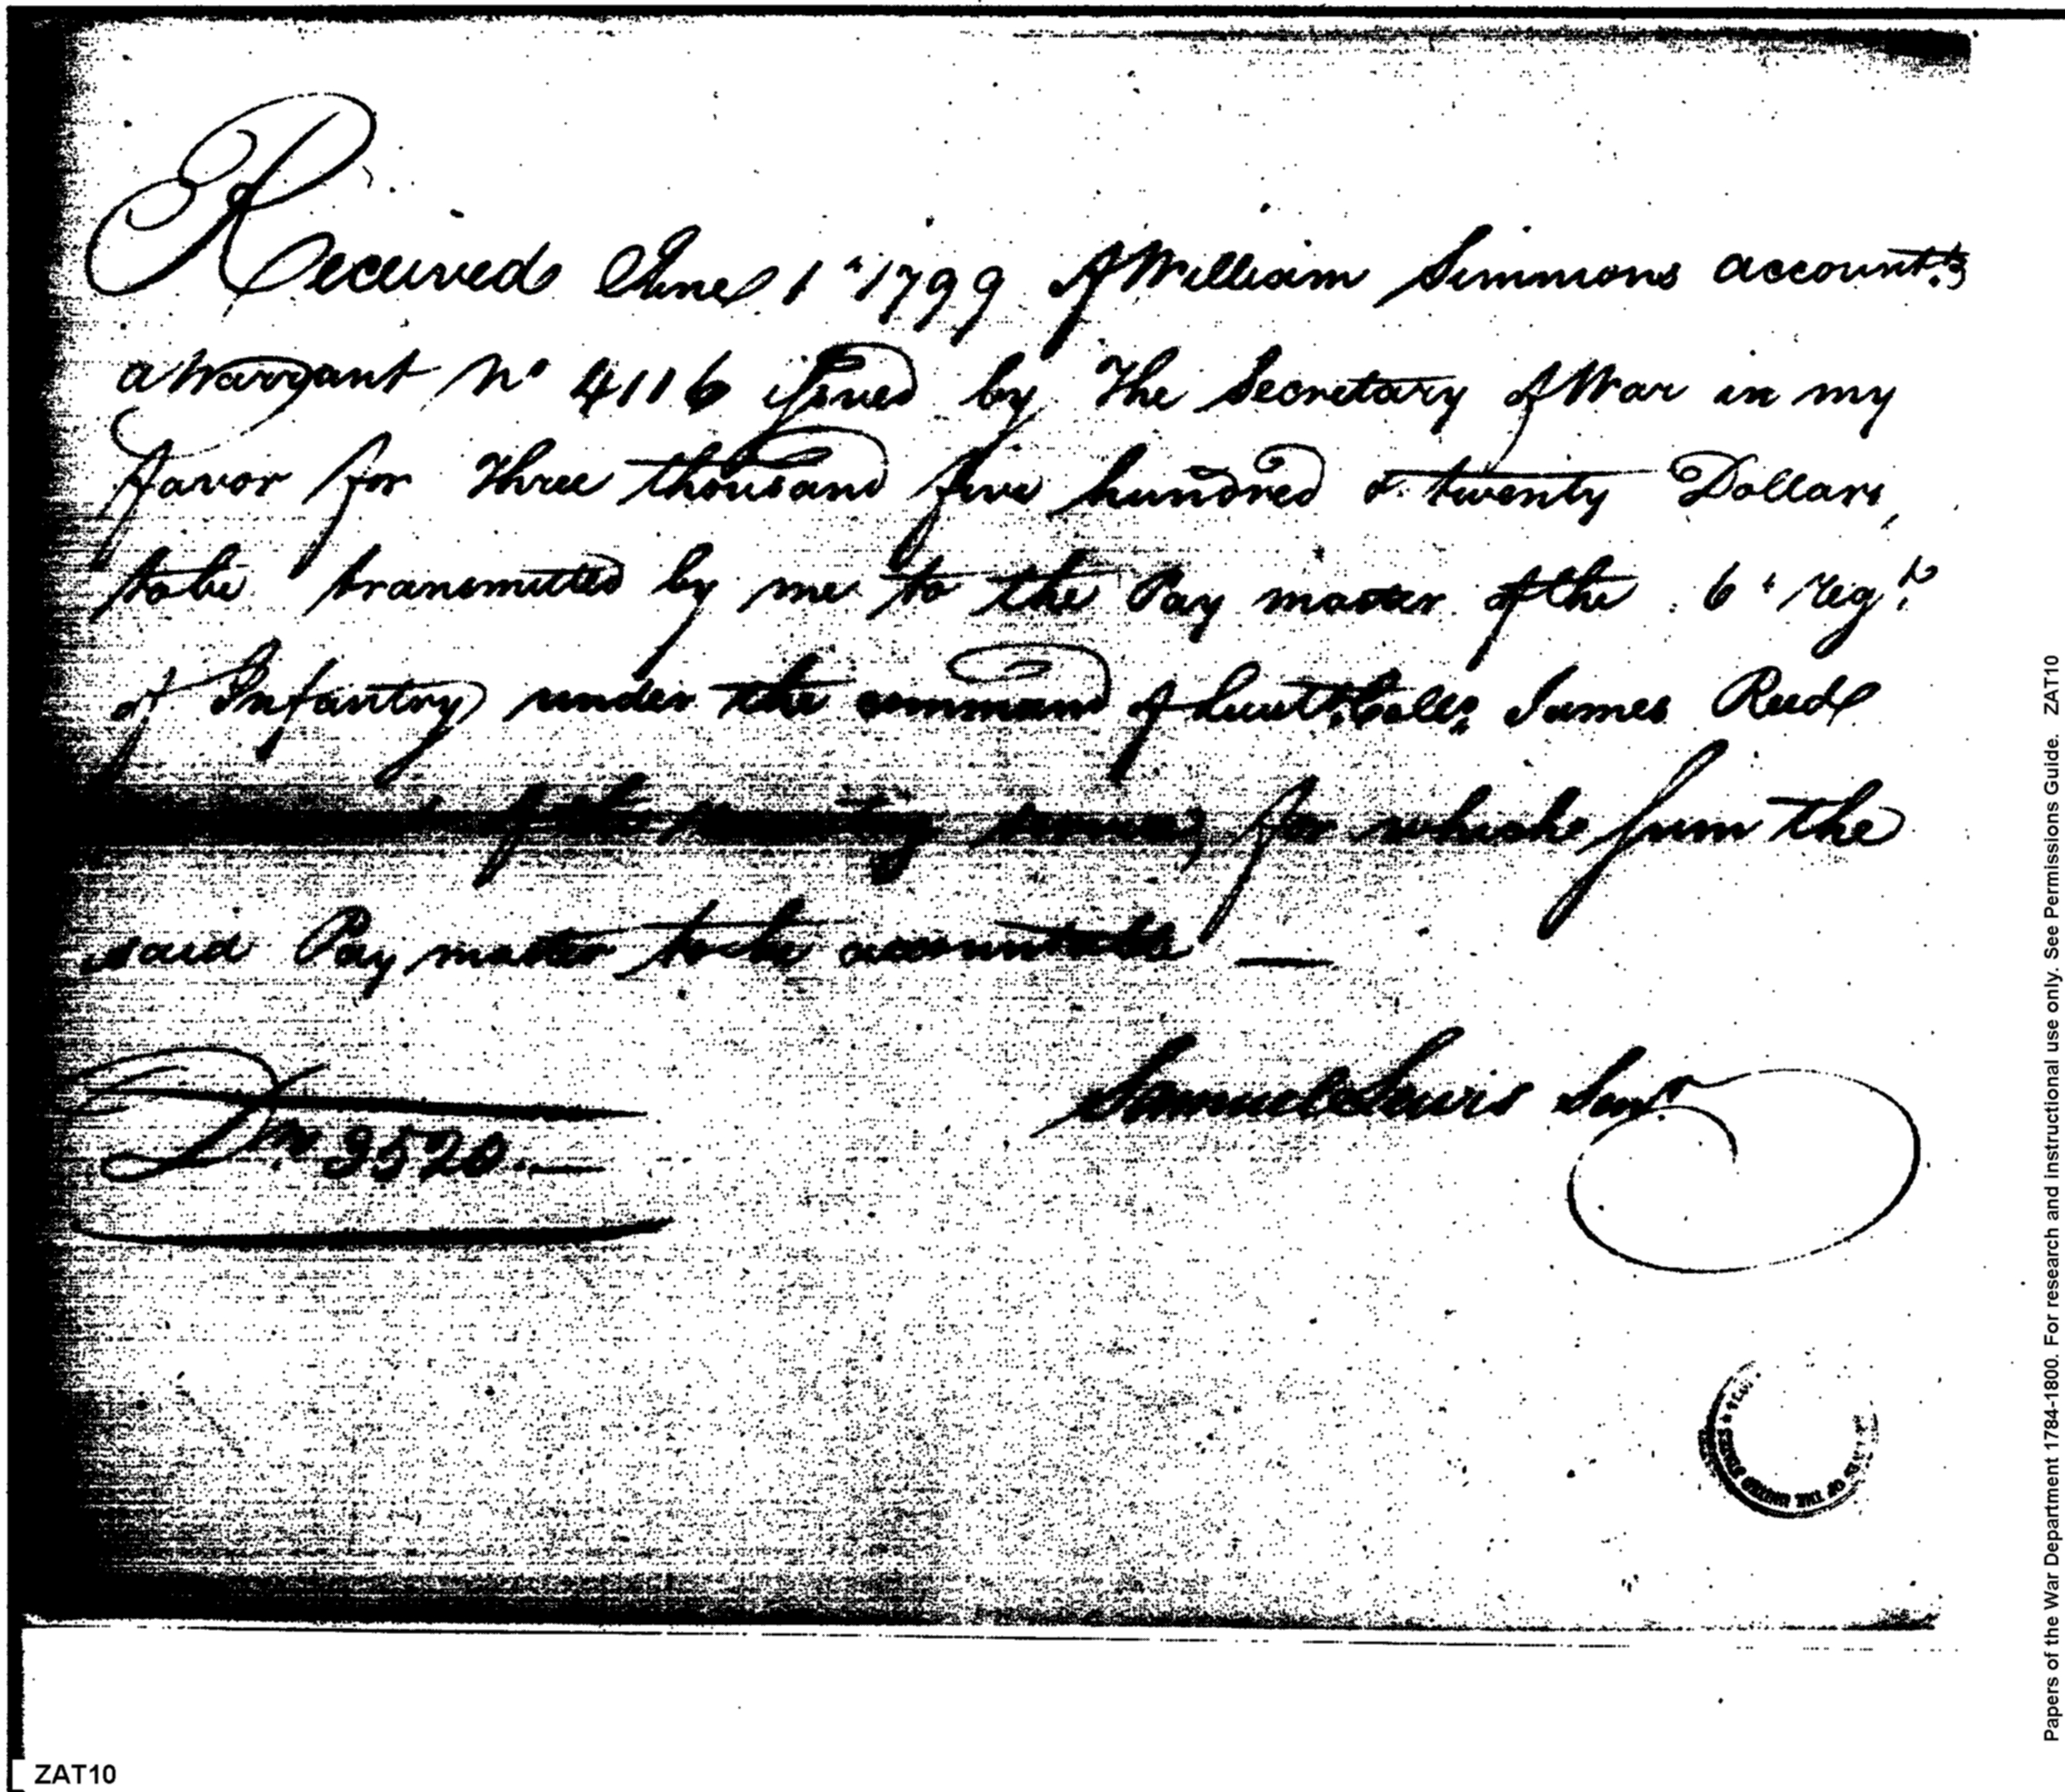 Received June 1st 1799 of William Simmons accountt
a warrant No 4116 issued by the Secretary of War in my
favor for Three thousand five hundred & twenty Dollars,
to be transmitted by me to the Pay master of the 6t regt
of Infantry under the command of Lieut. Coll. James Read
of the recruiting service, for which sum the
said Pay master to be accountable —
Samuel Lewis Senr
Drs 3520.—
OF THE UNITED STATES
ZAT10
Papers of the War Department 1784-1800. For research and instructional use only. See Permissions Guide. ZAT10